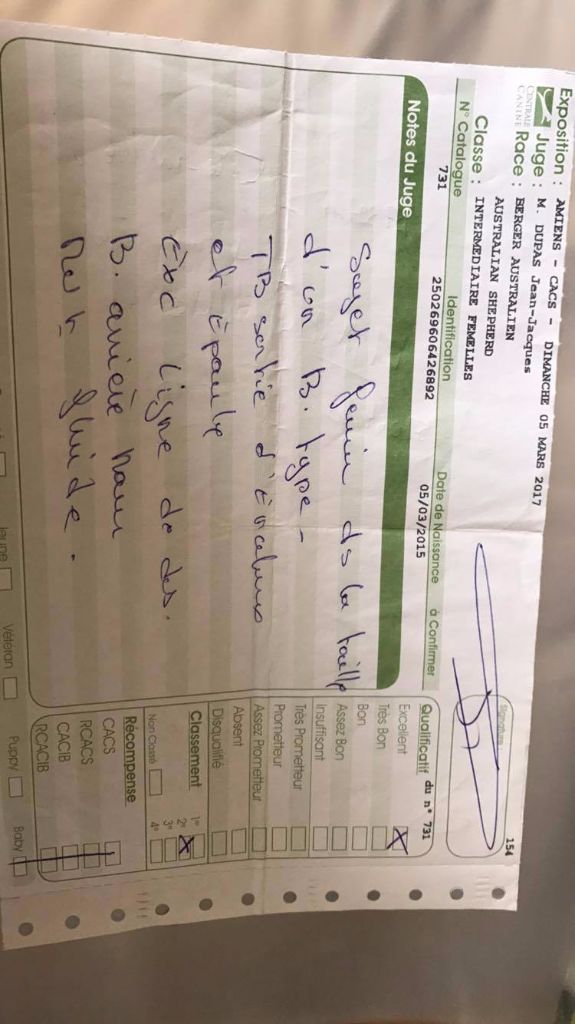 Exposition : AMIENS - CACS - DIMANCHE 05 MARS 2017
154
CENTRALE CANINE
Juge : M. DUPAS Jean-Jacques
Race : BERGER AUSTRALIEN
AUSTRALIAN SHEPHERD
Classe : INTERMEDIAIRE FEMELLES
Signature
N° Catalogue Identification Date de Naissance à Confirmer
731 250269606426892 05/03/2015
Notes du Juge
Sujet féminin ds la taille
d'un B. type -
TB sortie d'Encolure
et Épaule
Exc ligne de dos.
B. arrière main
Mvt fluide.
Qualificatif du n° 731
Excellent X
Très Bon
Bon
Assez Bon
Insuffisant
Très Prometteur
Prometteur
Assez Prometteur
Absent
Disqualifié
Classement
1°
2° X
3°
4°
Non Classé
Récompense
CACS
RCACS
CACIB
RCACIB
Jeune Vétéran Puppy Baby